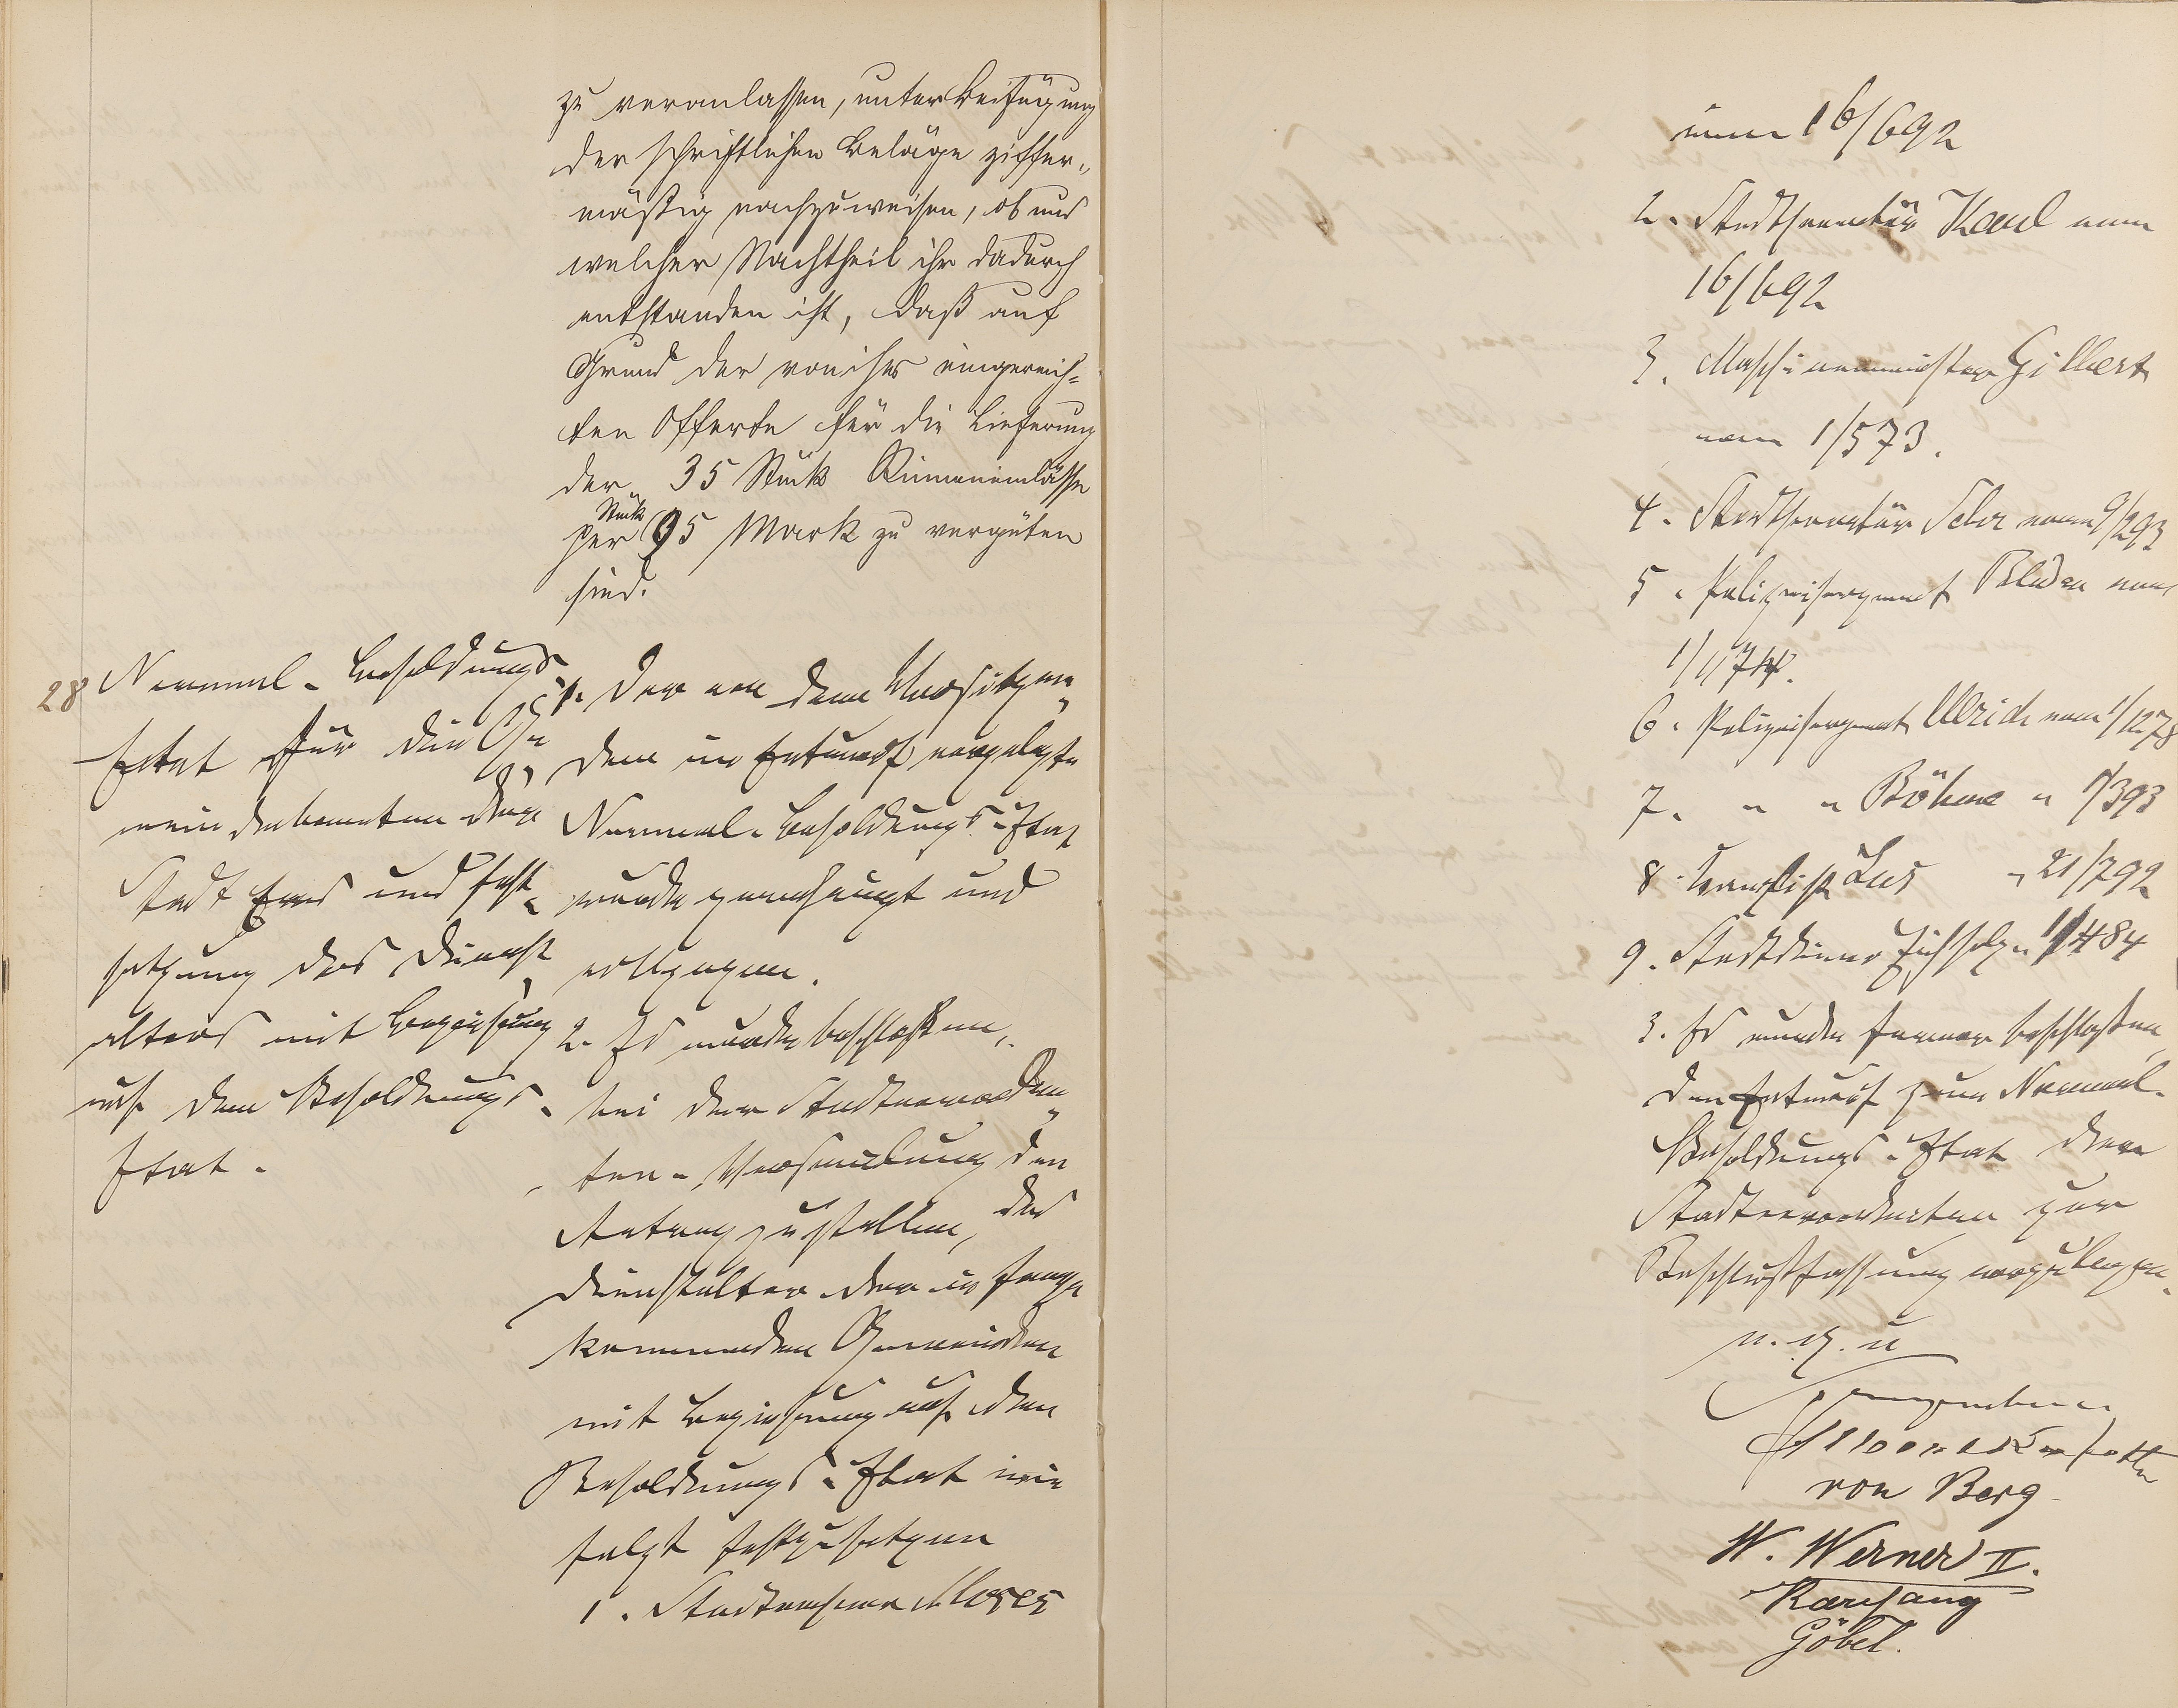 zu veranlassen, unter Beifügung
der schriftlichen Beläge ziffer-
mäßig nachzuweisen, ob und
welcher Nachtheil ihr dadurch
entstanden ist, daß auf
Grund der von ihr eingereich-
ten Offerte für die Lieferung
der 35 Stück Rinneneinlässe
per Stück 95 Mark zu vergüten
sind.
28 Normal-Besoldungs-
Etat für die Ge-
meindebeamten der
Stadt Ems und Fest-
setzung des Dienst-
alters mit Beziehung
auf den Besoldungs-
Etat.
1. Der von dem Vorsitzen-
den im Entwurf vorgelegte
Normal-Besoldungs-Etat
wurde genehmigt und
vollzogen.
2. Es wurde beschlossen,
bei der Stadtverordne-
ten-Versammlung den
Antrag zu stellen, das
Dienstalter der in Frage
kommenden Gemeinde
mit Beziehung auf den
Besoldungs-Etat wie
folgt festzusetzen
1. Stadtrechner Moses
vom 16/6 92
2. Stadtsecretär Kaul vom
16/6 92
3. Maschinenmeister Gilbert
vom 1/5 73.
4. Stadtsecretär vom 9/2 93
5. Polizeisergeant vom
1/1 74.
6. Polizeisergeant Ulrich vom 1/12 78
7. " " Böhme " 1/3 93
8. Kanzlist " 21/7 92
9. Stadtdiener " 1/4 84
3. Es wurde ferner beschlossen,
den Entwurf zum Normal-
Besoldungs-Etat der
Stadtverordneten zur
Beschlußfassung vorzulegen.
v. g. u.
von Berg
W. Werner II.
Göbel.